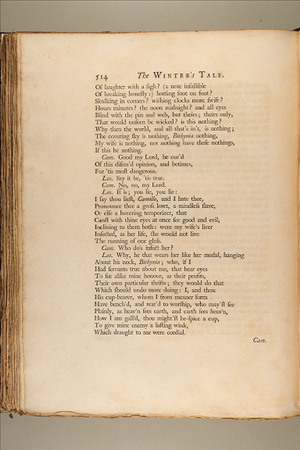 514 The WINTER's TALE.
Of laughter with a sigh? (a note infallible
Of breaking honesty:) horsing foot on foot?
Skulking in corners? wishing clocks more swift?
Hours minutes? the noon midnight? and all eyes
Blind with the pin and web, but theirs; theirs only,
That would unseen be wicked? is this nothing?
Why then the world, and all that's in't, is nothing;
The covering sky is nothing, Bithynia nothing,
My wife is nothing, nor nothing have these nothings,
If this be nothing.
Cam. Good my Lord, be cur'd
Of this diseas'd opinion, and betimes,
For 'tis most dangerous.
Leo. Say it be, 'tis true.
Cam. No, no, my Lord.
Leo. It is; you lie, you lie:
I say thou liest, Camillo, and I hate thee,
Pronounce thee a gross lowt, a mindless slave,
Or else a hovering temporizer, that
Canst with thine eyes at once see good and evil,
Inclining to them both: were my wife's liver
Infected, as her life, she would not live
The running of one glass.
Cam. Who do's infect her?
Leo. Why, he that wears her like her medal, hanging
About his neck, Bithynia; who, if I
Had servants true about me, that bear eyes
To see alike mine honour, as their profits,
Their own particular thrifts; they would do that
Which should undo more doing: I, and thou
His cup-bearer, whom I from meaner form
Have bench'd, and rear'd to worship, who may'st see
Plainly, as heav'n sees earth, and earth sees heav'n,
How I am gall'd, thou might'st be-spice a cup,
To give mine enemy a lasting wink,
Which draught to me were cordial.
Cam.